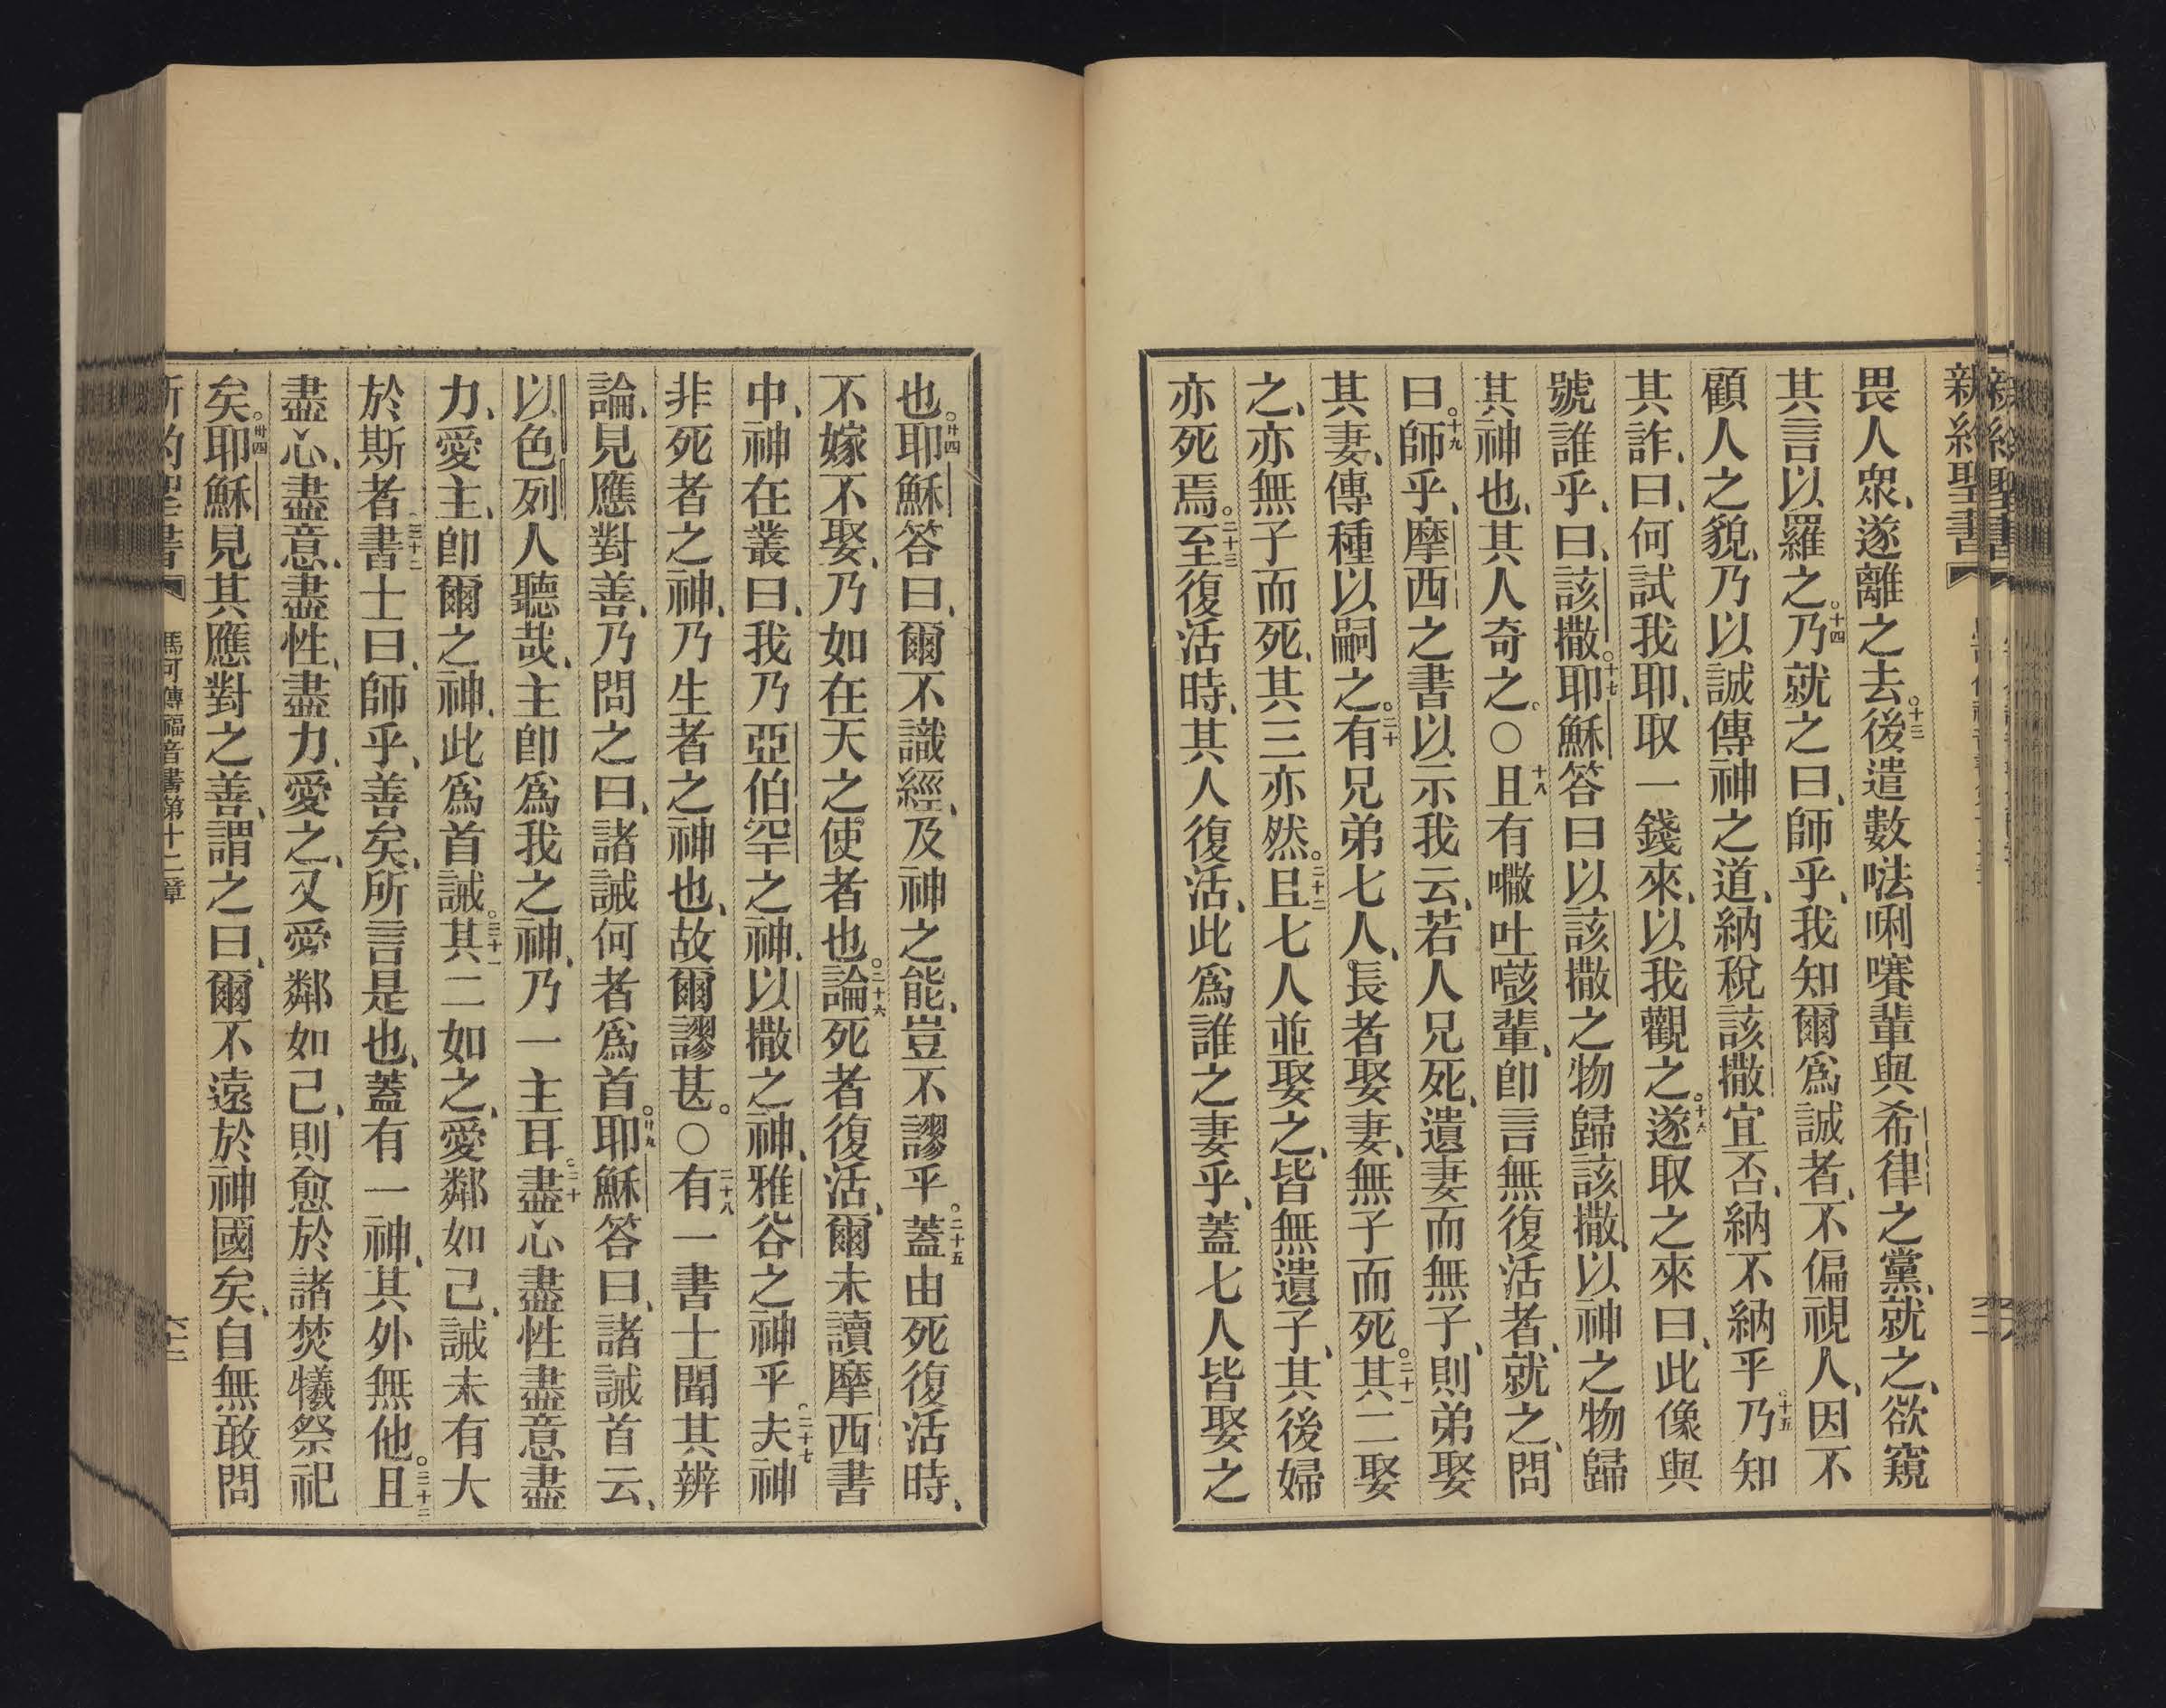 新約聖書
畏人眾、遂離之去。十三後遣數㗝唎㘔輩與希律之黨、就之、欲窺
其言以羅之。十四乃就之曰、師乎、我知爾爲誠者、不偏視人、因不
顧人之貌、乃以誠傳神之道、納稅該撒宜否、納不納乎。十五乃知
其詐、曰、何試我耶、取一錢來、以我觀之。十六遂取之來曰、此像與
號誰乎、曰、該撒。十七耶穌答曰以該撒之物歸該撒、以神之物歸
其神也、其人奇之。○十八且有㘔吐㗨輩、卽言無復活者、就之、問
曰。十九師乎、摩西之書以示我云、若人兄死、遺妻而無子、則弟娶
其妻、傳種以嗣之。二十有兄弟七人、長者娶妻、無子而死。二十一其二娶
之、亦無子而死、其三亦然。二十二且七人並娶之、皆無遺子、其後婦
亦死焉。二十三至復活時、其人復活、此爲誰之妻乎、蓋七人皆娶之
也。廿四耶穌答曰、爾不識經、及神之能、豈不謬乎。二十五蓋由死復活時、
不嫁不娶、乃如在天之使者也。二十六論死者復活、爾未讀摩西書
中、神在叢曰、我乃亞伯罕之神、以撒之神、雅谷之神乎。二十七夫神
非死者之神、乃生者之神也、故爾謬甚。○二十八有一書士聞其辨
論、見應對善、乃問之曰、諸誡何者爲首。廿九耶穌答曰、諸誡首云、
以色列人聽哉、主卽爲我之神、乃一主耳。三十盡心盡性盡意盡
力、愛主、卽爾之神、此爲首誡。三十一其二如之、愛鄰如己、誡未有大
於斯者。三十二書士曰、師乎、善矣、所言是也、蓋有一神、其外無他。三十三且
盡心、盡意、盡性、盡力、愛之、又愛鄰如己、則愈於諸焚犧祭祀
矣。卅四耶穌見其應對之善、謂之曰、爾不遠於神國矣、自無敢問
新約聖書 馬可傳福音書第十二章 六十二